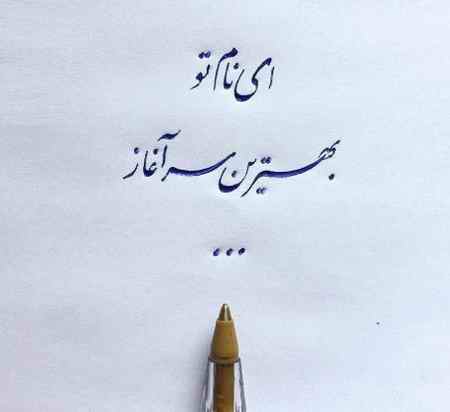 ای نام تو
بهترین سرآغاز
...